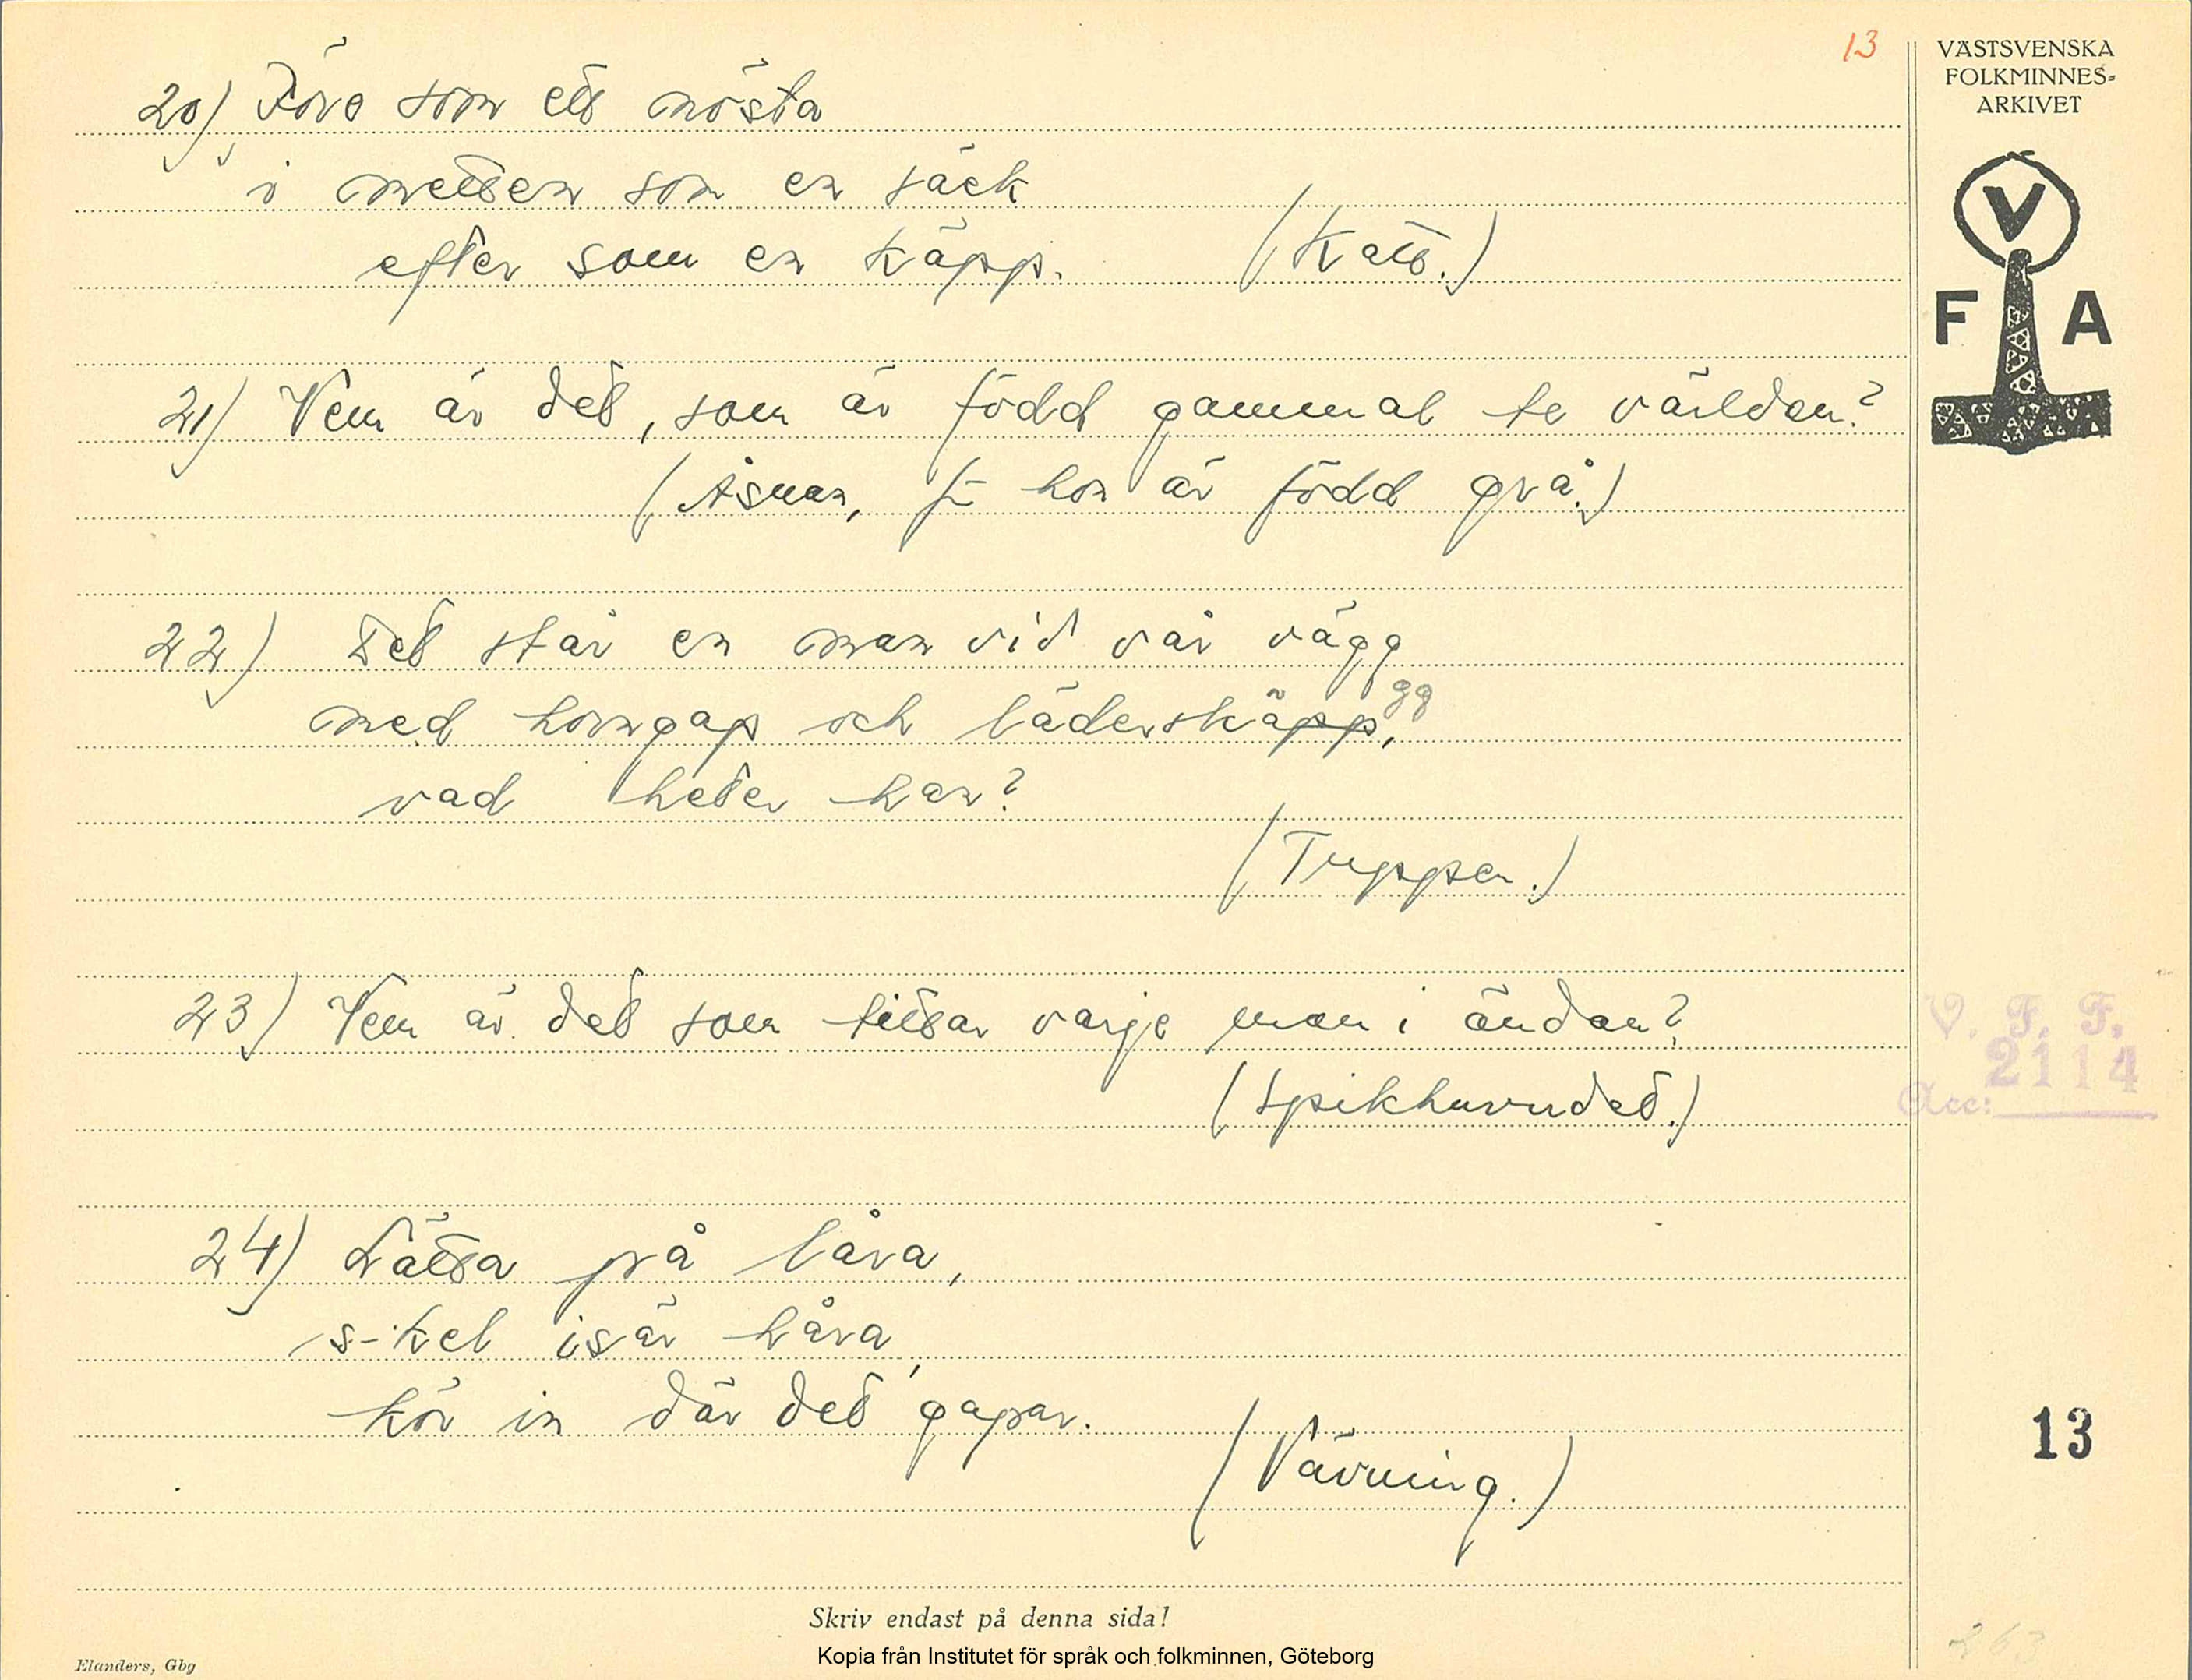 13
VÄSTSVENSKA
FOLKMINNES-
ARKIVET
V
F A
20) Före som ett nösta
i mitten som en säck
efter som en käpp. (Katt.)
21) Vem är det, som är född gammal te världen?
(Åsnan, f- hon är född grå.)
22) Det står en man vid vår vägg
med horngap och läderskäpp, gg
vad heter han?
(Tuppen.)
23) Vem är det som tittar varje man i ändan?
(Spikhuvudet.)
V. F. F.
2114
Acc:
24) Lätta på låra,
s-kel isär håra,
kör in där det gapar.
(Vävning.)
13
Skriv endast på denna sida!
Kopia från Institutet för språk och folkminnen, Göteborg
Elanders, Gbg
263